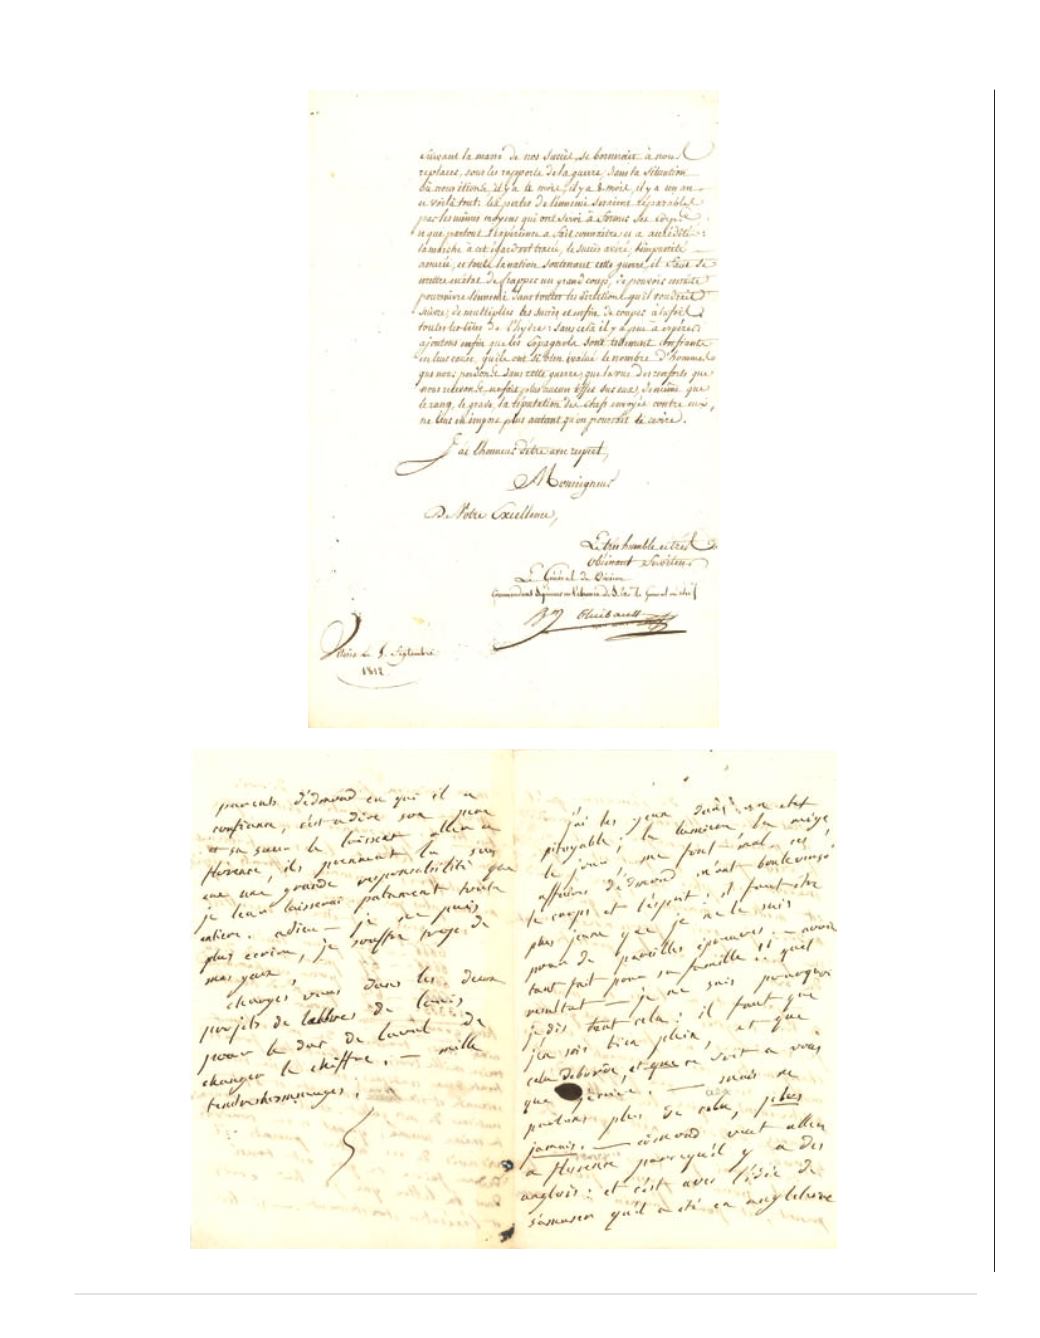 suivant la marre de nos succès, se bornerait à nous
replacer, sous les rapports de la guerre, dans la situation
où nous étions, il y a 4 mois, il y a 8 mois, il y a un an
et voilà tout: les pertes de l'ennemi seraient réparables
par les mêmes moyens qui ont servi à former ses corps
et que partout l'expérience a fait connaître et a accrédité:
la marche à cet égard est tracée, le succès avéré, l'impunité
assurée, et toute la nation soutenant cette guerre, il faut se
mettre en état de frapper un grand coup, de pouvoir ensuite
poursuivre l'ennemi dans toutes les directions qu'il voudrait
suivre; de multiplier les succès et enfin de couper à la fois
toutes les têtes de l'hydre: sans cela il y a peu à espérer:
ajoutons enfin que les Espagnols sont tellement confiants
en leur cause, qu'ils ont si bien évalué le nombre d'hommes
que nous perdons dans cette guerre, que la vue des renforts que
nous recevons, ne fait plus aucun effet sur eux, de même que
le rang, le grade, la réputation des chefs envoyés contre eux,
ne leur en impose plus autant qu'on pourrait le croire.
J'ai l'honneur d'être avec respect,
Monseigneur
De Votre Excellence,
Le très humble et très
obéissant Serviteur
Le Général de Division
Bon Thiébault
le 8. Septembre
1812
parents d'édmond en qui il a
confiance, c'est a dire son père
et sa soeur le laissent aller a
florence, ils prennent la sur
eux une grande responsabilité que
je leur laisserai patament toute
entiere. adieu — je ne puis
plus ecrire, je souffre trop de
mes yeux,
changez vous dans les deux
projets de lettres de Louis
pour le duc de Laval de
changer le chiffre. — mille
tendres hommages.
j'ai les yeux dans un etat
pitoyable; la lumiere, la neige,
le jour me font mal. ces
affaires d'édmond m'ont boulversé
le corps et l'esprit: il faut être
plus jeune que je ne le suis
pour de pareilles épreuves. — avoir
tant fait pour sa famille!! quel
resultat — je ne sais pourquoi
je dis tout cela; il faut que
j'en sois bien plein, et que
cela deborde, et que ce soit a vous
que j'écrive. — mais ne
parlons plus de cela, plus
jamais. — édmond veut aller
a florence parcequ'il y a des
anglois: et c'est avec l'idée de
s'amuser qu'il a été en angleterre